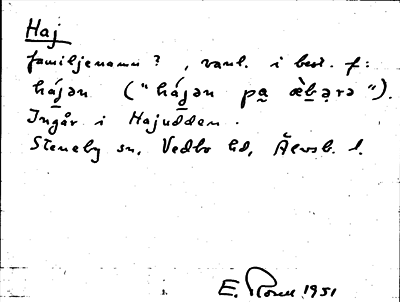 Haj
familjenamn ? , vanl. i best. f:
háj̲ən ("háj̲ən pa̲ æ̀b̲ə̣rə").
Ingår i Hajudden.
Steneby sn, Vedbo hd, Älvsb. l.
E. 1951